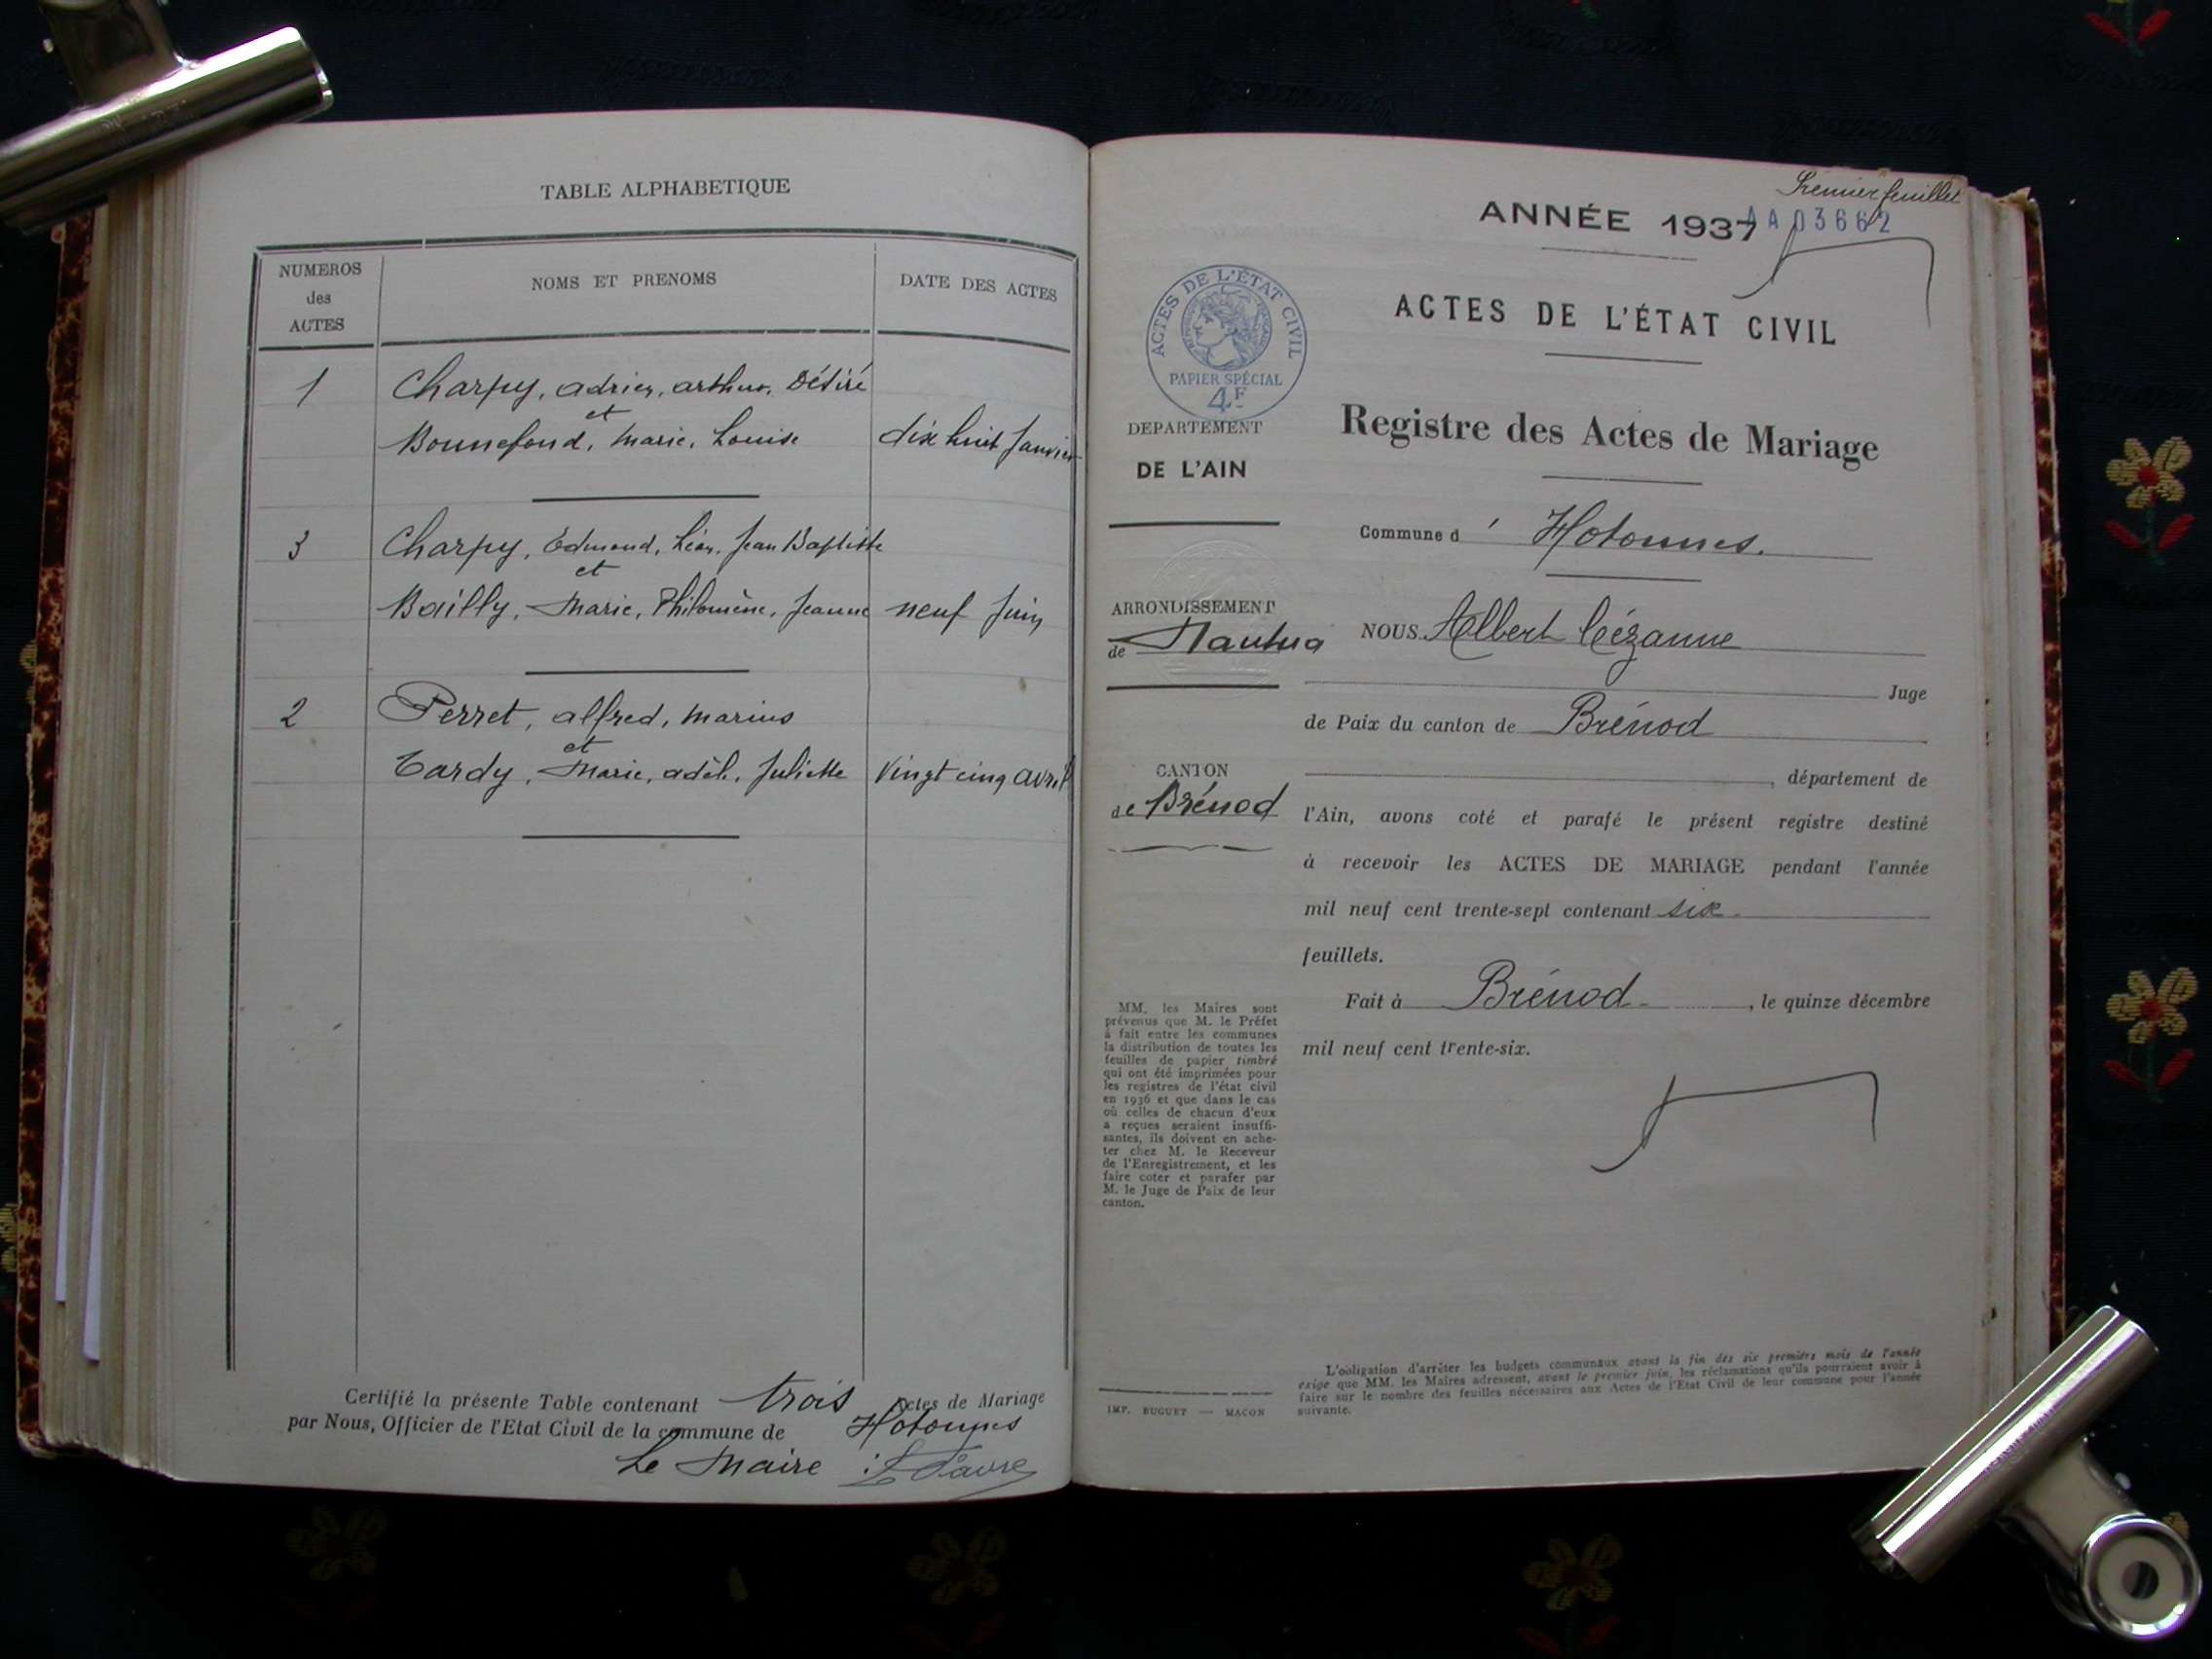 TABLE ALPHABETIQUE
NUMEROS
des
ACTES
NOMS ET PRENOMS
DATE DES ACTES
1 Charpy, adrien, arthur, Désiré
et
Bonnefond, Marie, Louise dix huit Janvier
3 Charpy, Edmond, Léon, Jean Baptiste
et
Bailly, Marie, Philomène, Jeanne neuf Juin
2 Perret, alfred, Marius
et
Tardy, Marie, adèle, Juliette Vingt cinq avril
Certifié la présente Table contenant trois Actes de Mariage
par Nous, Officier de l'Etat Civil de la commune de Hotonnes
Le Maire : Favre
Premier feuillet
ANNÉE 1937
AA03662
ACTES DE L'ÉTAT CIVIL
PAPIER SPÉCIAL
4F
ACTES DE L'ÉTAT CIVIL
Registre des Actes de Mariage
DEPARTEMENT
DE L'AIN
Commune d' Hotonnes.
ARRONDISSEMENT
de Nantua
NOUS Albert Cézanne
Juge
de Paix du canton de Brénod
CANTON
de Brénod
, département de
l'Ain, avons coté et parafé le présent registre destiné
à recevoir les ACTES DE MARIAGE pendant l'année
mil neuf cent trente-sept contenant six
feuillets.
Fait à Brénod, le quinze décembre
mil neuf cent trente-six.
MM. les Maires sont
prévenus que M. le Préfet
à fait entre les communes
la distribution de toutes les
feuilles de papier timbré
qui ont été imprimées pour
les registres de l'état civil
en 1936 et que dans le cas
où celles de chacun d'eux
a reçues seraient insuffi-
santes, ils doivent en ache-
ter chez M. le Receveur
de l'Enregistrement, et les
faire coter et parafer par
M. le Juge de Paix de leur
canton.
IMP. BUGUET — MACON
L'obligation d'arrêter les budgets communaux avant la fin des six premiers mois de l'année
exige que MM. les Maires adressent, avant le premier juin, les réclamations qu'ils pourraient avoir à
faire sur le nombre des feuilles nécessaires aux Actes de l'Etat Civil de leur commune pour l'année
suivante.